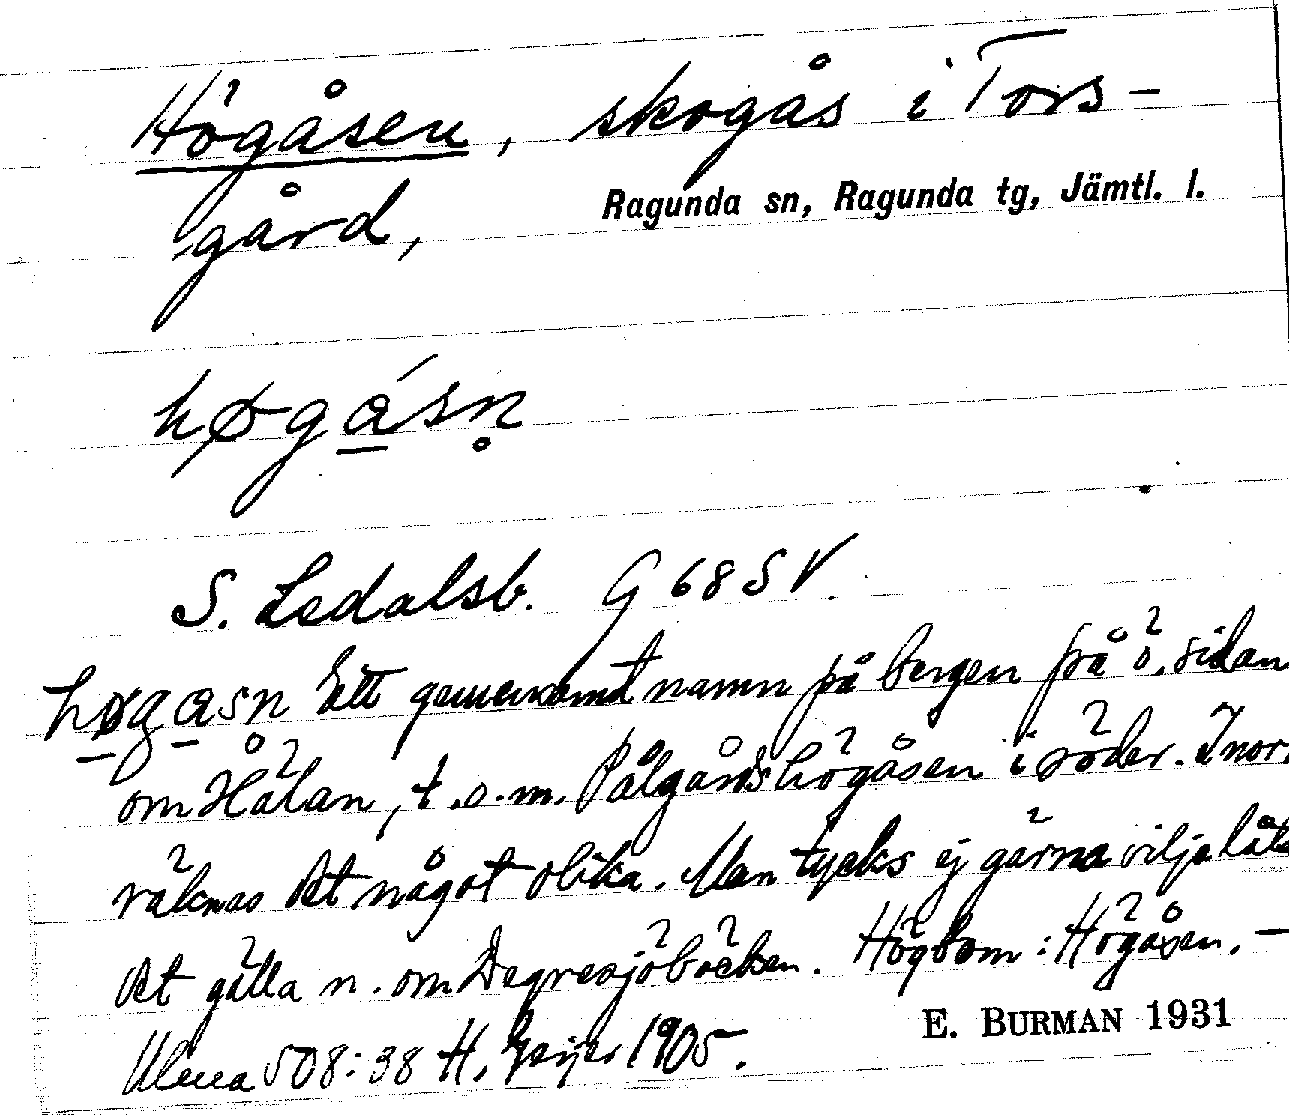 Högåsen, skogås i Tors-
gård,
Ragunda sn, Ragunda tg, Jämtl. l.
høgåsn̥
S. Ledalsb. G 68 SV.
høgasn Ett gemensamt namn på bergen på ö. sidan
om Hålan, t.o.m. Pålgårdshögåsen i söder. I norr
räknas det något olika. Man tycks ej gärna vilja låta
det gälla n. om Degresjöbäcken. Högbom: Högåsen. –
Ulma 508:38 H. Geijer 1905.
E. BURMAN 1931